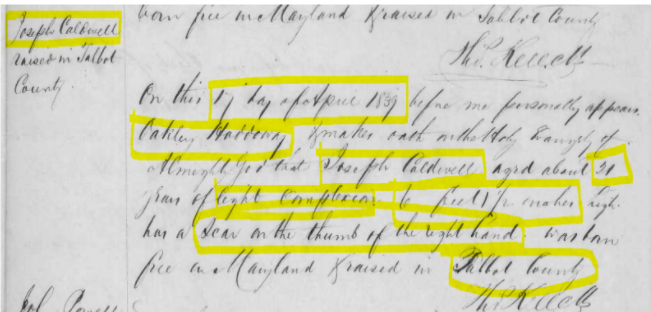 born free in Maryland & raised in Talbot County
Joseph Caldwell
raised in Talbot
County
On this 17 day of April 1839 before me personally appears
Oakley Haddaway & makes oath on the Holy Evangely of
Almighty God that Joseph Caldwell aged about 21
years of light complexion 6 feet 1/2 inches high
has a scar on the thumb of the right hand was born
free in Maryland & raised in Talbot County